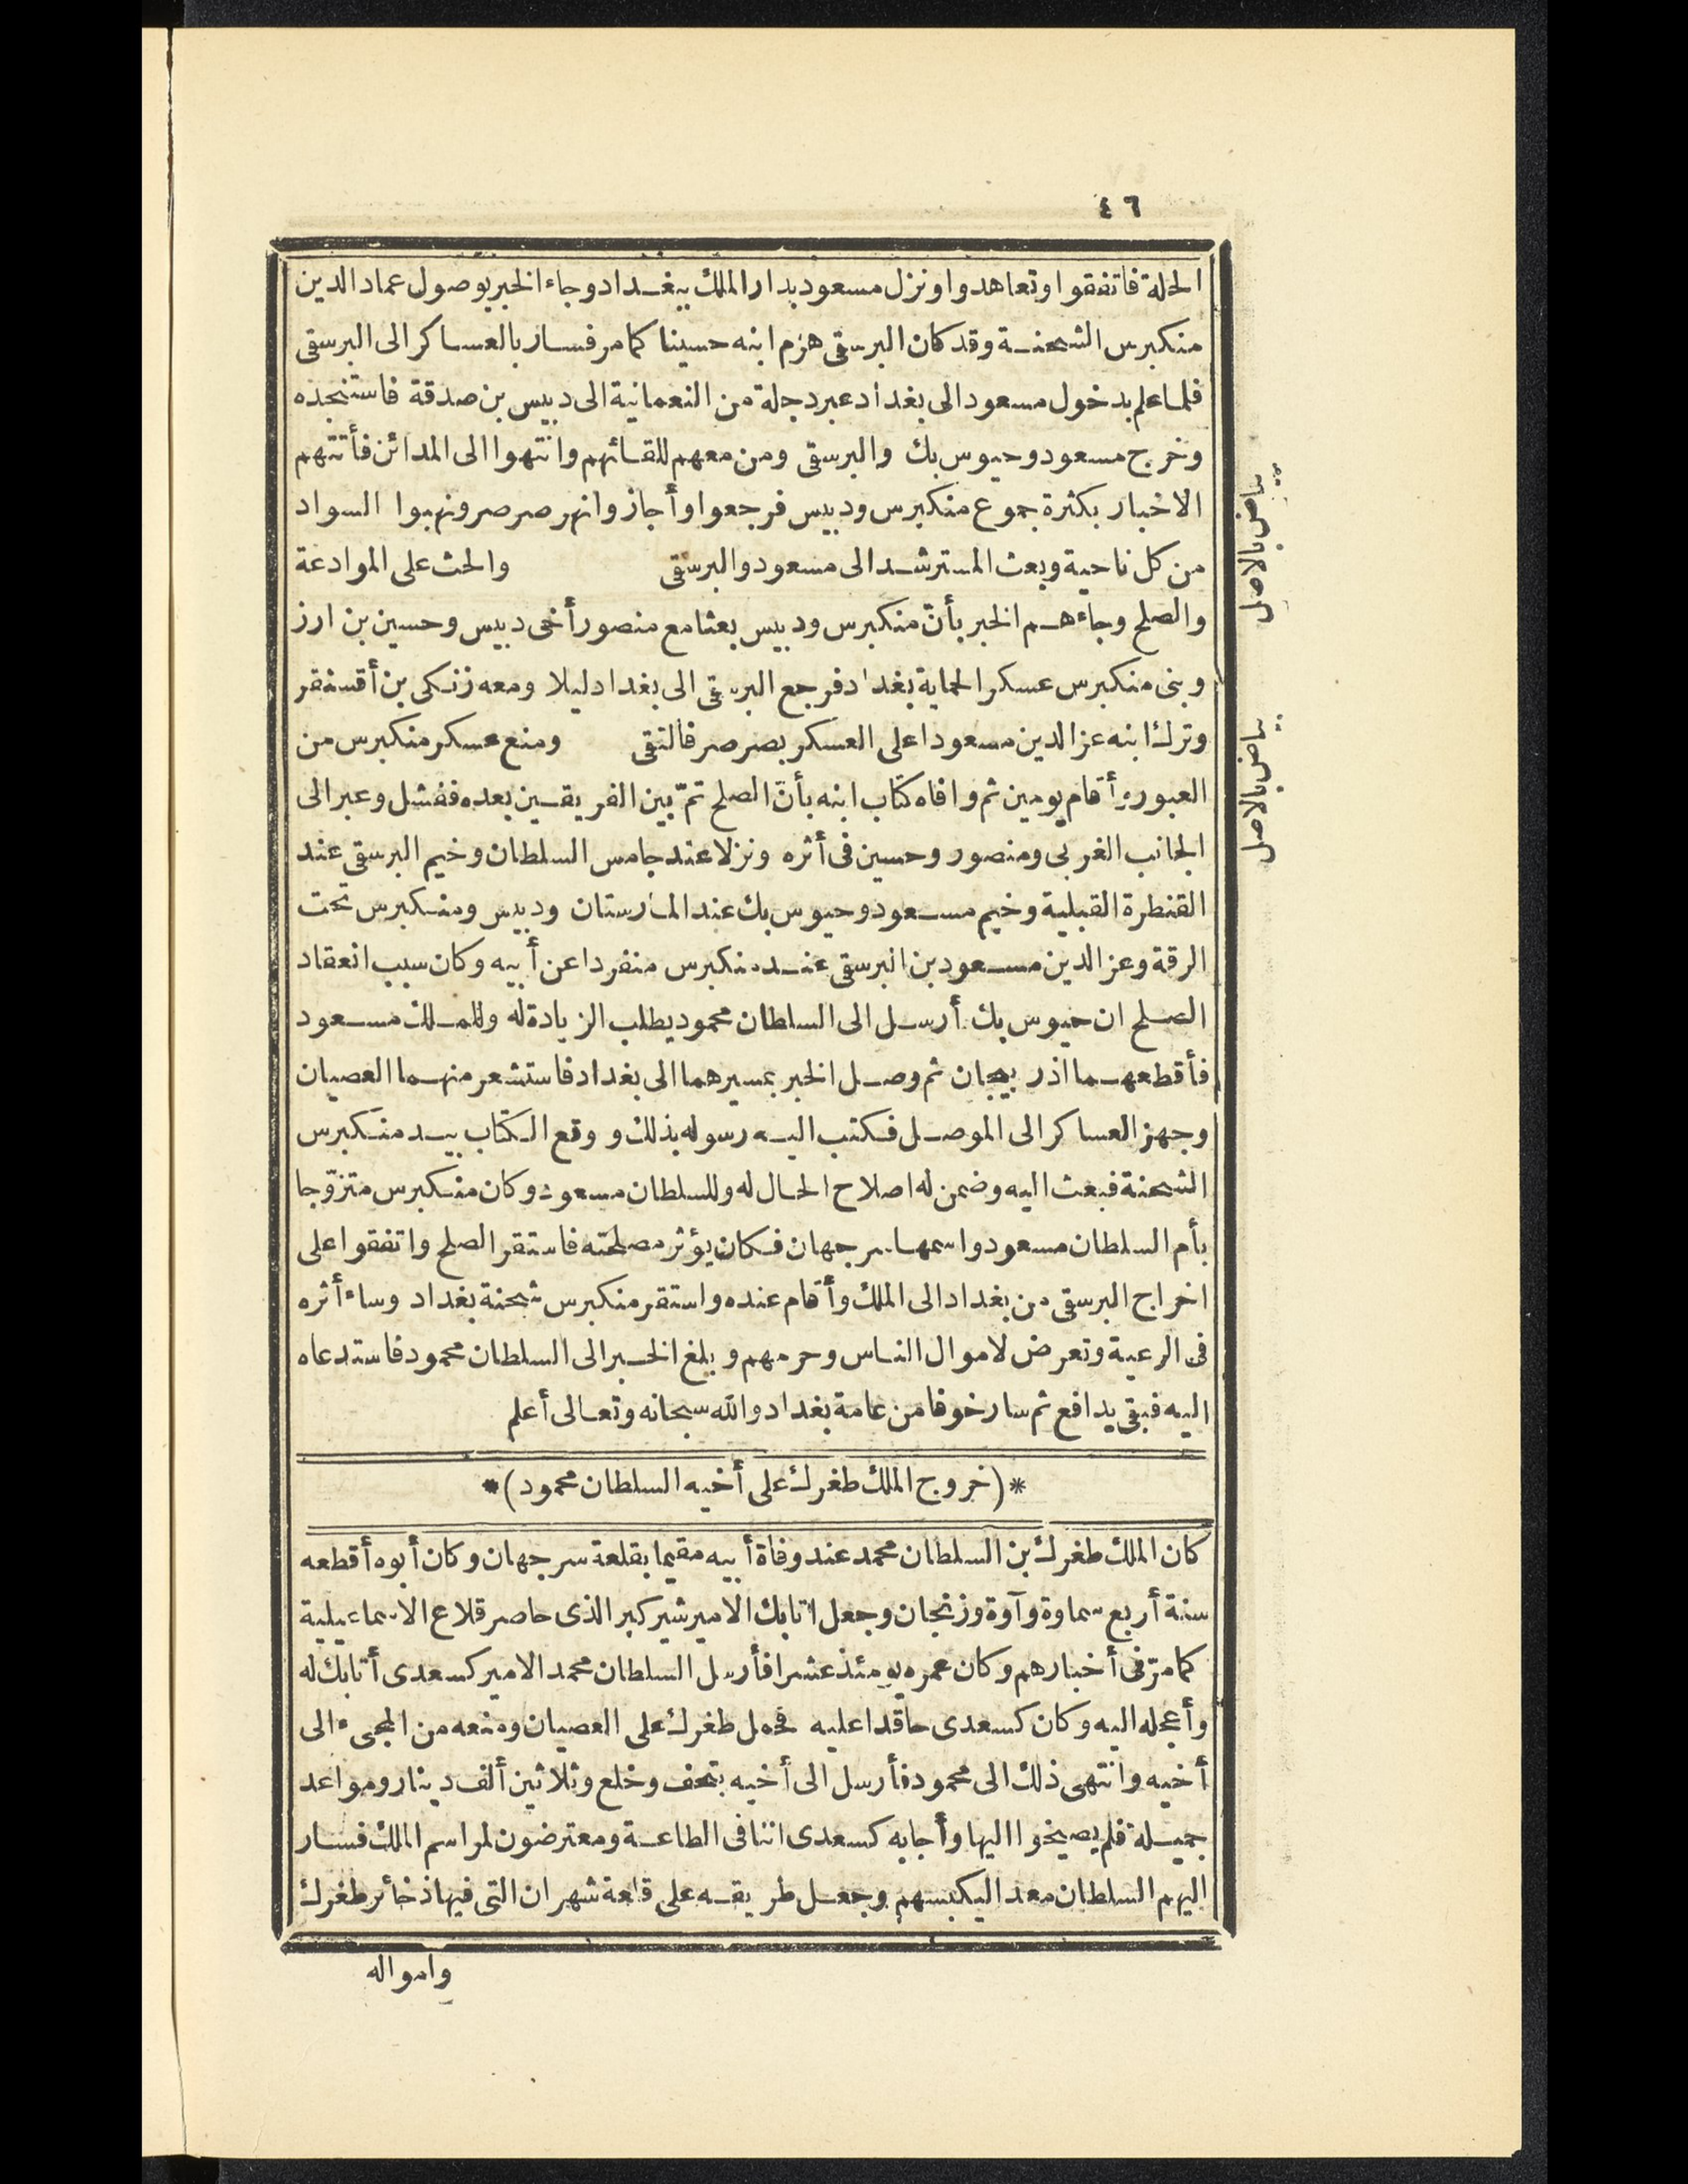 ٤٦
الحلة فاتفقوا وتعاهدوا ونزل مسعود بدار الملك ببغداد وجاء الخبر بوصول عماد الدين
منكبرس الشحنة وقد كان البرسقى هزم ابنه حسينا كما مر فسار بالعساكر الى البرسقى
فلما علم بدخول مسعود الى بغداد عبر دجلة من النعمانية الى دبيس بن صدقة فاستنجده
وخرج مسعود وحيوس بك والبرسقى ومن معهم للقائهم وانتهوا الى المدائن فأتتهم
الاخبار بكثرة جموع منكبرس ودبيس فرجعوا وأجازوا نهر صرصر ونهبوا السواد
من كل ناحية وبعث المسترشد الى مسعود والبرسقى والحث على الموادعة
والصلح وجاءهم الخبر بأنّ منكبرس ودبيس بعثا مع منصور أخى دبيس وحسين بن ارز
وبنى منكبرس عسكرا لحماية بغداد فرجع البرسقى الى بغداد ليلا ومعه زنكى بن أقسنقر
وترك ابنه عز الدين مسعودا على العسكر بصرصر فالتقى ومنع عسكر منكبرس من
العبور وأقام يومين ثم وافاه كتاب ابنه بأنّ الصلح تمّ بين الفريقين بعده ففشل وعبر الى
الجانب الغربى ومنصور وحسين فى أثره ونزلا عند جامس السلطان وخيم البرسقى عند
القنطرة القبلية وخيم مسعود وحيوس بك عند المارستان ودبيس ومنكبرس تحت
الرقة وعز الدين مسعود بن البرسقى عند منكبرس منفردا عن أبيه وكان سبب انعقاد
الصلح ان حيوس بك أرسل الى السلطان محمود يطلب الزيادة له وللملك مسعود
فأقطعهما اذربيجان ثم وصل الخبر بمسيرهما الى بغداد فاستشعر منهما العصيان
وجهز العساكر الى الموصل فكتب اليه رسوله بذلك ووقع الكتاب بيد منكبرس
الشحنة فبعث اليه وضمن له اصلاح الحال له وللسلطان مسعود وكان منكبرس متزوّجا
بأم السلطان مسعود واسمها سرجهان فكان يؤثر مصلحته فاستقر الصلح واتفقوا على
اخراج البرسقى من بغداد الى الملك وأقام عنده واستقر منكبرس شحنة بغداد وساء أثره
فى الرعية وتعرض لاموال الناس وحرمهم وبلغ الخبر الى السلطان محمود فاستدعاه
اليه فبقى يدافع ثم سار خوفا من عامة بغداد والله سبحانه وتعالى أعلم
*(خروج الملك طغرك على أخيه السلطان محمود)*
كان الملك طغرك بن السلطان محمد عند وفاة أبيه مقيما بقلعة سرجهان وكان أبوه أقطعه
سنة أربع سماوة وآوة وزنجان وجعل اتابك الامير شيركير الذى حاصر قلاع الاسماعيلية
كما مرّ فى أخبارهم وكان عمره يومئذ عشرا فأرسل السلطان محمد الامير كسعدى أتابك له
وأعجله اليه وكان كسعدى حاقدا عليه فحمل طغرك على العصيان ومنعه من المجىء الى
أخيه وانتهى ذلك الى محمود فأرسل الى أخيه بتحف وخلع وثلاثين ألف دينار ومواعد
جميلة فلم يصيخوا اليها وأجابه كسعدى اننا فى الطاعة ومعترضون لمراسم الملك فسار
اليهم السلطان معدا ليكبسهم وجعل طريقه على قلعة شهران التى فيها ذخائر طغرك
وامواله
بياض بالاصل
بياض بالاصل